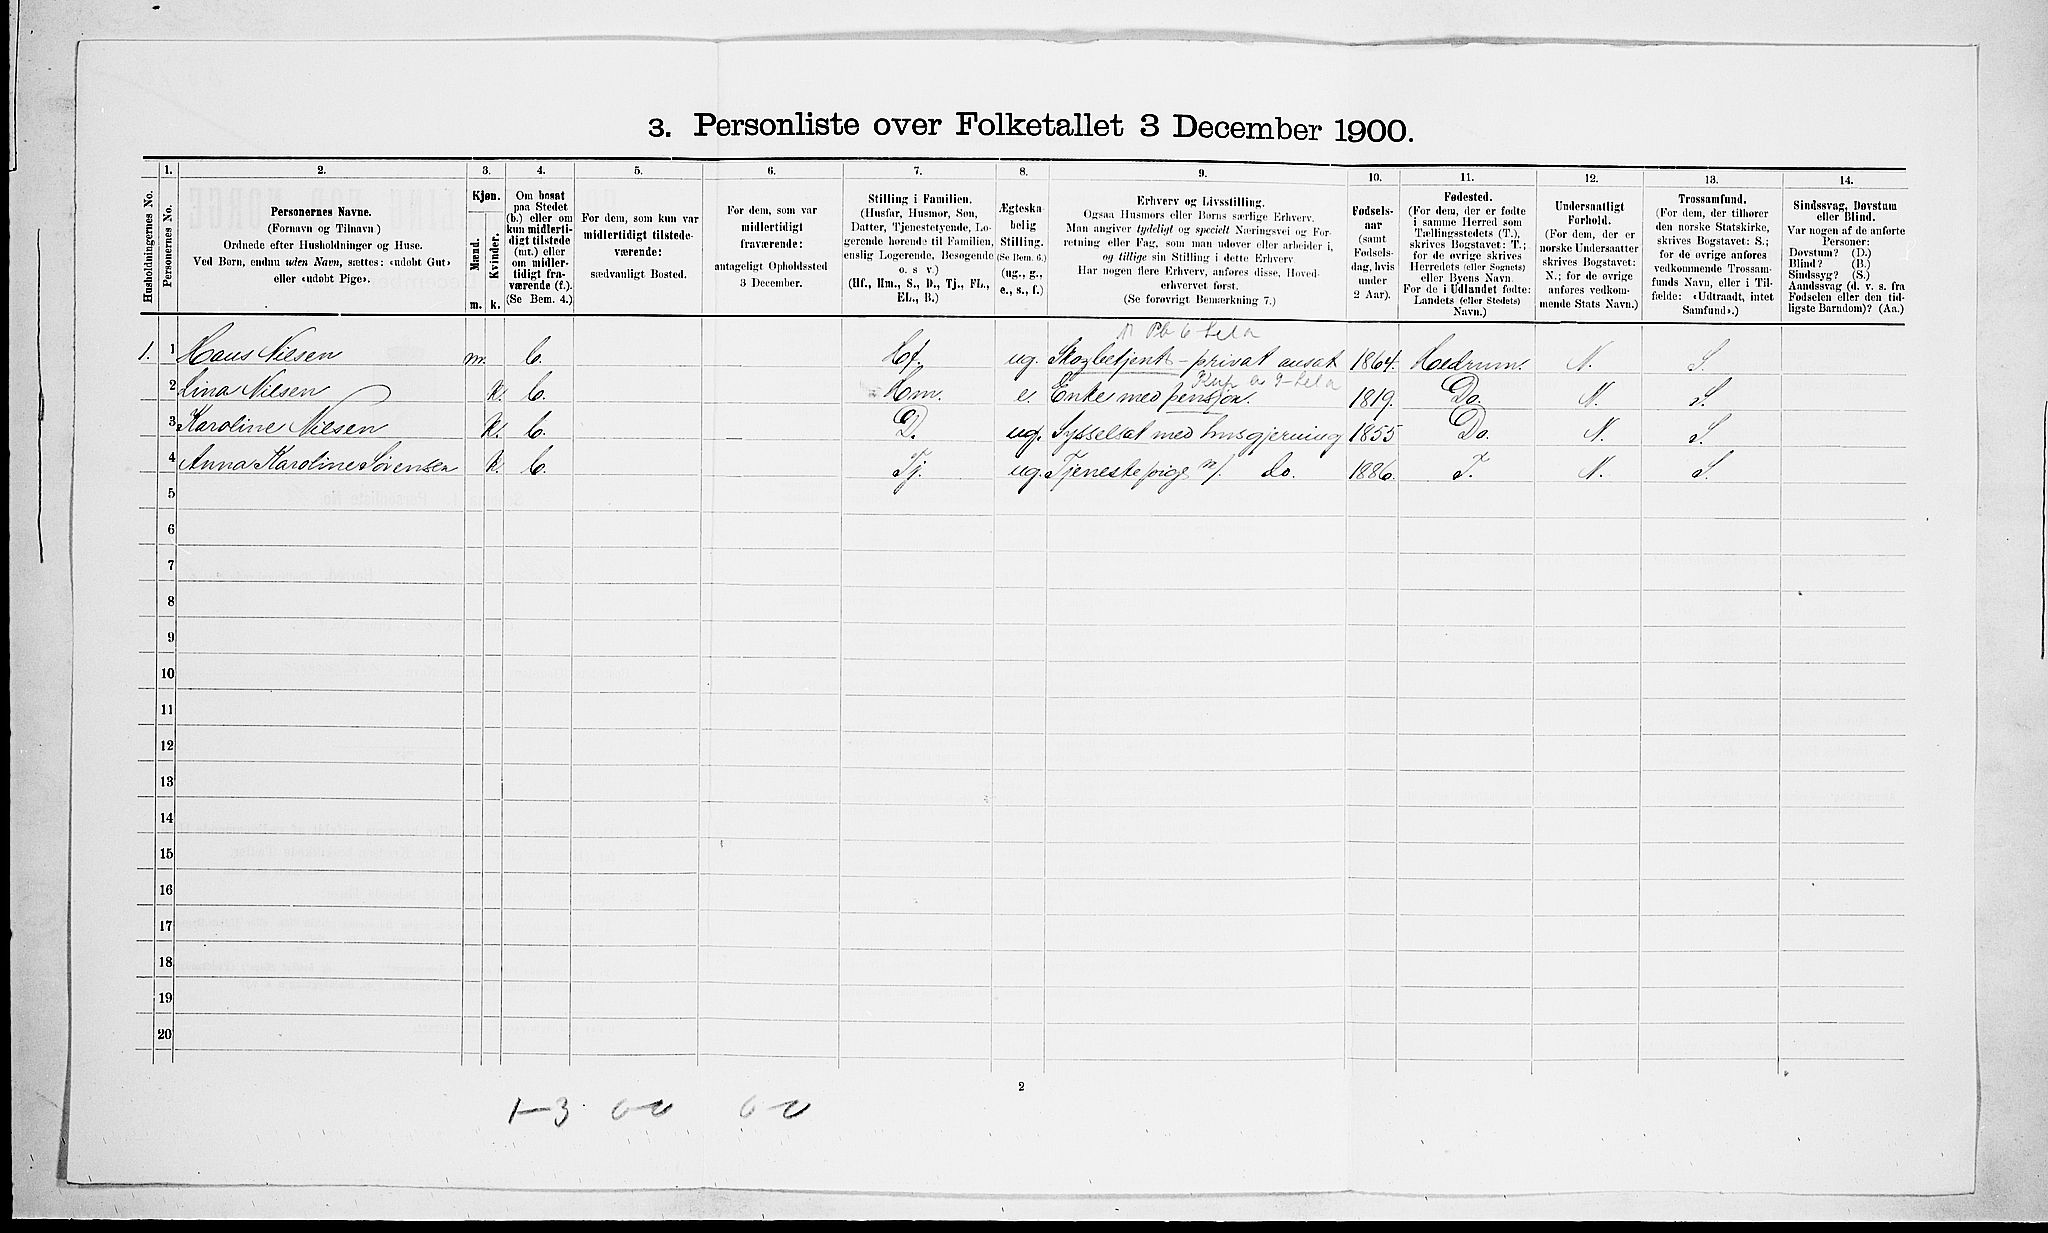 3. Personliste over Folketallet 3 December 1900.
Husholdningernes No.
1.
Personernes No.
2.
Personernes Navne.
(Fornavn og Tilnavn)
Ordnede efter Husholdninger og Huse.
Ved Børn, endnu uden Navn, sættes: «udøbt Gut»
eller «udøbt Pige».
3.
Kjøn.
Mænd.
Kvinder.
m. k.
4.
Om bosat
paa Stedet
(b.) eller om
kun midlerti-
digt tilstede
(mt.) eller
om midler-
tidigt fra-
værende (f.).
(Se Bem. 4.)
5.
For dem, som kun var
midlertidigt tilstede-
værende:
sædvanligt Bosted.
6.
For dem, som var
midlertidigt
fraværende:
antageligt Opholdssted
3 December.
7.
Stilling i Familien.
(Husfar, Husmor, Søn,
Datter, Tjenestetyende, Lo-
gerende hørende til Familien,
enslig Logerende, Besøgende
o. s v.)
(Hf., Hm., S., D., Tj., FL.,
EL., B.)
8.
Ægteska-
belig
Stilling.
(Se Bem. 6.)
(ug., g.,
e., s., f.)
9.
Erhverv og Livsstilling.
Ogsaa Husmors eller Børns særlige Erhverv.
Man angiver tydeligt og specielt Næringsvei og For-
retning eller Fag, som man udøver eller arbeider i,
og tillige sin Stilling i dette Erhverv
Har nogen flere Erhverv, anføres disse, Hoved-
erhvervet først.
(Se forøvrigt Bemærkning 7.)
10.
Fødsels-
aar
(samt
Fødsels-
dag, hvis
under
2 Aar).
11.
Fødested.
(For dem, der er fødte
i samme Herred som
Tællingsstedets (T.),
skrives Bogstavet: T.;
for de øvrige skrives
Herredets (eller Sognets)
eller Byens Navn
For de i Udlandet fødte:
Landets (eller Stedets)
Navn.)
12.
Undersaatligt
Forhold.
(For dem, der er
norske Undersaatter
skrives Bogstavet:
N.; for de øvrige
anføres vedkom-
mende Stats Navn.)
13.
Trossamfund.
(For dem, der tilhører
den norske Statskirke,
skrives Bogstavet: S.;
for de øvrige anføres
vedkommende Trossam-
funds Navn, eller i Til-
fælde: «Udtraadt, intet
Samfund».)
14.
Sindssvag, Døvstum
eller Blind.
Var nogen af de anførte
Personer:
Døvstum? (D.)
Blind? (B.)
Sindssyg? (S.)
Aandssvag (d. v. s. fra
Fødselen eller den tid-
ligste Barndom)? (Aa.)
1. 1 Hans Nilsen m. b. Hf. ug. Skogbetjent - privat ansat 1864. Hedrum. N. S.
2 Lina Nilsen k. b. Hm. e. Enke med pensjon. 1819. Do. N. S.
3 Karoline Nilsen k. b. D. ug. Sysselsat med husgjerning 1855 Do. N. S.
4 Anna Karoline Sørensen k. b. Tj. ug. Tjenestepige m/. do. 1886. T. N. S.
5
6
7
8
9
10
11
12
13
14
15
16
17
18
19
20
2
1-3